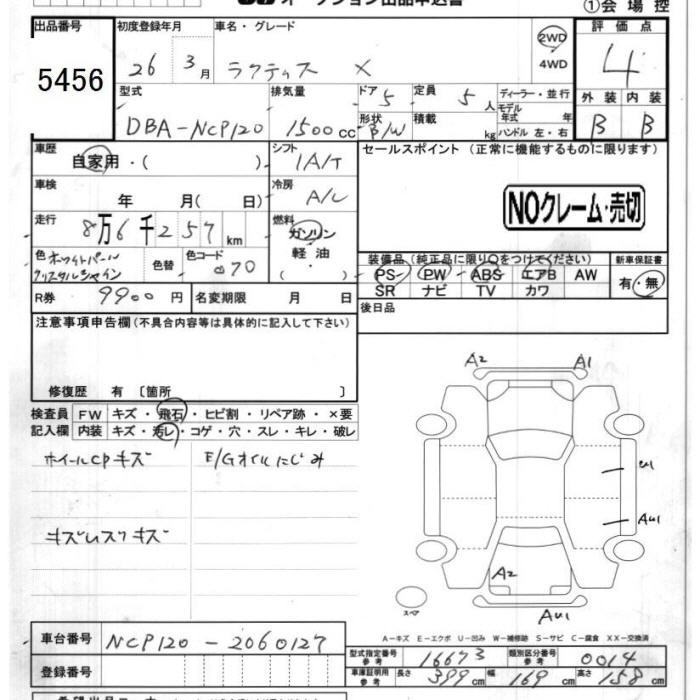 オークション出品申込書
①会場控
出品番号 初度登録年月 車名・グレード 評価点
5456 26 3月 ラクティス X 2WD 4
4WD
型式 排気量 ドア 定員 ディーラー・並行 外装 内装
DBA-NCP120 1500cc 5 5人 モデル年式 年 B B
形状 B/W 積載 kg ハンドル 左・右
車歴 シフト セールスポイント (正常に機能するものに限ります)
自家用・( ) IA/T
車検 冷房
年 月( 日) A/C
NOクレーム・売切
走行 燃料
8万6千257km ガソリン
軽油・
( )
色 ホワイトパール 色替 色コード 070
クリスタルシャイン
装備品(純正品に限り○をつけてください) 新車保証書
PS PW ABS エアB AW 有・無
SR ナビ TV カワ
R券 9900円 名変期限 月 日
後日品
注意事項申告欄(不具合内容等は具体的に記入して下さい)
修復歴 有 〔箇所 〕
検査員 FW キズ・飛石・ヒビ割・リペア跡・×要
記入欄 内装 キズ・汚レ・コゲ・穴・スレ・キレ・破レ
ホイールCPキズ E/Gオイルにじみ
A2 A1
U1
AU1
A2
AU1
スペア
A−キズ E−エクボ U−凹み W−補修跡 S−サビ C−腐食 XX−交換済
車台番号 NCP120-2060127
型式指定番号 参考 16673 類別区分番号 参考 0014
登録番号
車庫証明用 参考 長さ 399cm 幅 169cm 高さ 158cm